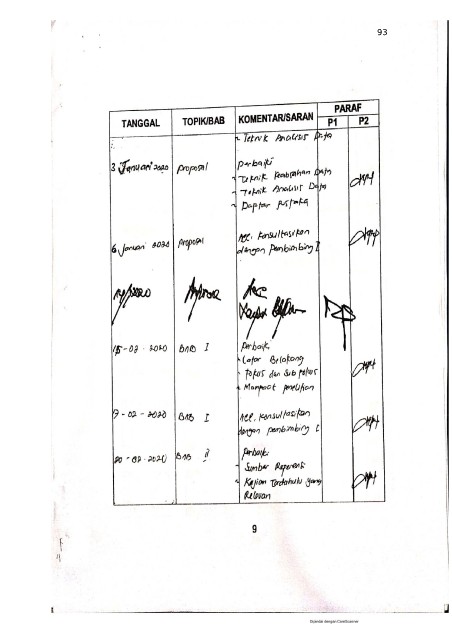 93
TANGGAL TOPIK/BAB KOMENTAR/SARAN PARAF
P1 P2
~ Teknik Analisis Data
3 Januari 2020 proposal perbaiki
~ Teknik Keabsahan Data
~ Teknik Analisis Data
~ Daptar pustaka
6 Januari 2020 proposal Acc. Konsultasikan
dengan pembimbing I
15 - 02 - 2020 BAB I perbaiki
- Latar Belakang
- Fokus dan Sub fokus
- Manpaat penelitian
- 02 - 2020 BAB I Acc. Konsultasikan
dengan pembimbing I
20 - 02 - 2020 BAB II perbaiki
- Sumber Referensi
- Kajian Terdahulu yang
Relevan
9
Dipindai dengan CamScanner